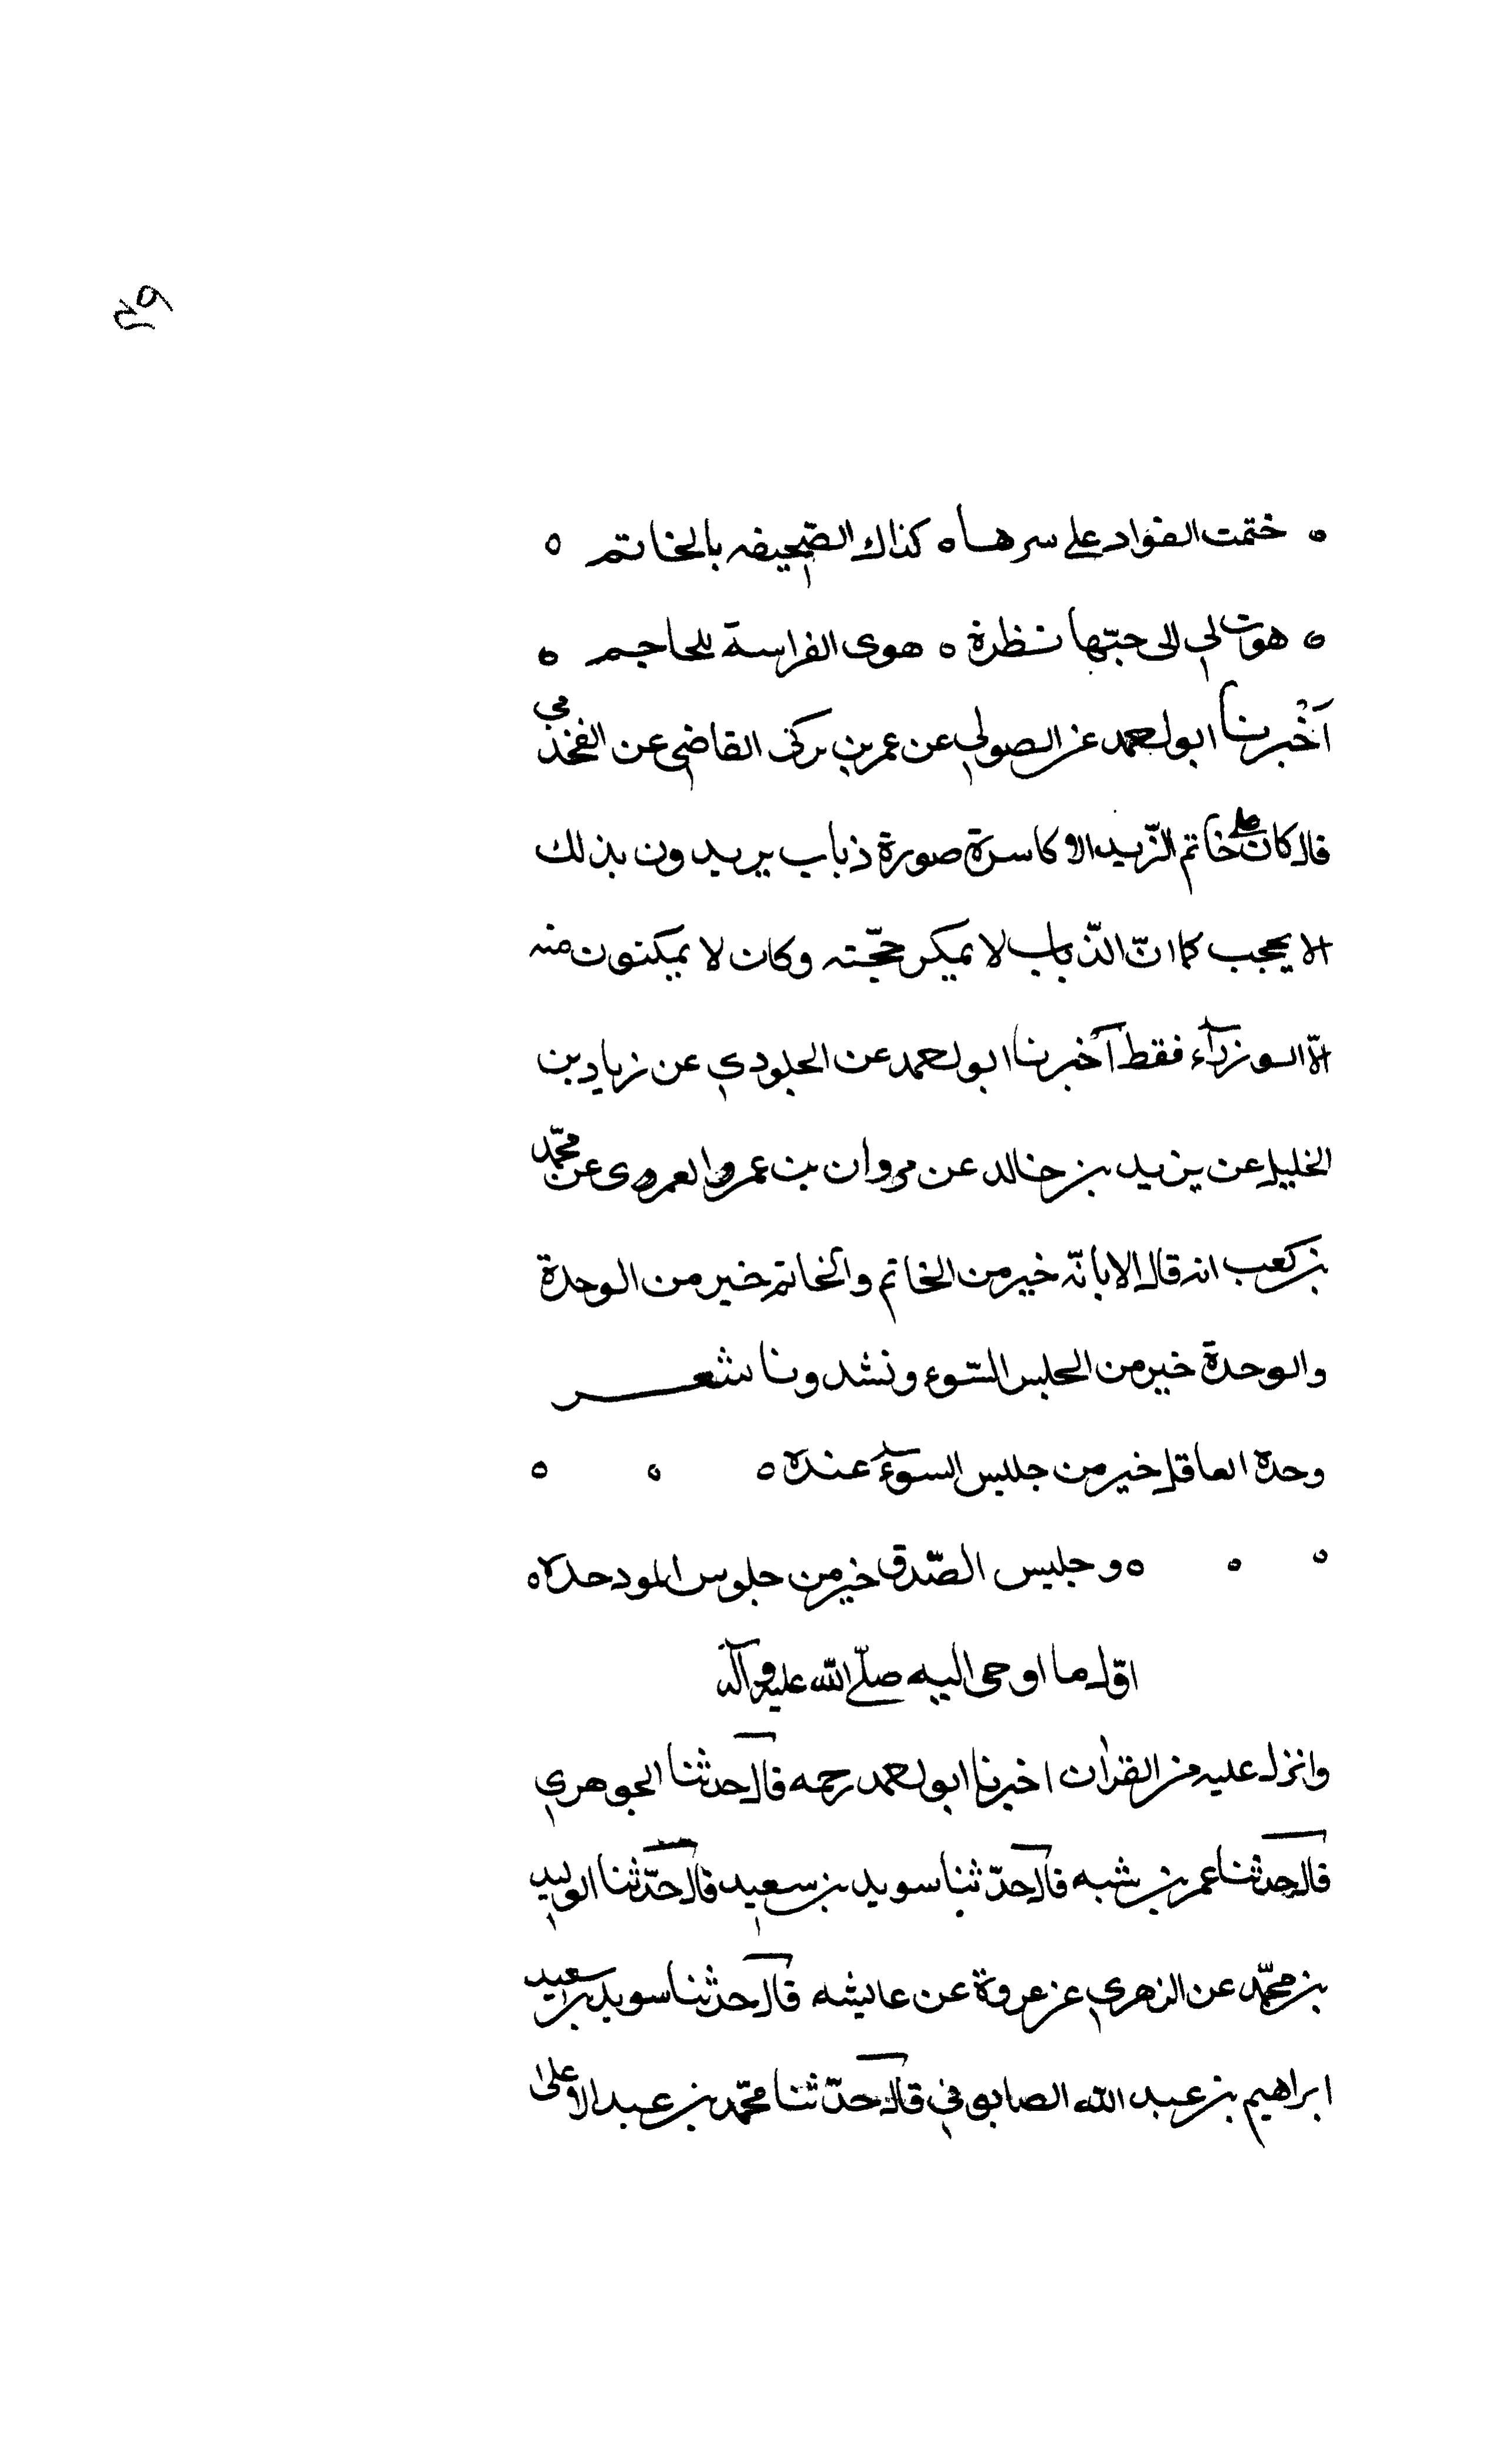 ختمت الفؤاد على سرها ه كذاك الصحيفه بالخاتم ه
ه هوت لي الى حبّها نظرة ه هوى الفراسة للحاجم ه
آخبرنا ابو احمد عن الصولي عن عمر بن تركى القاضي عن القحذمي
قال كان على خاتم الاكاسرة صورة ذباب يريدون بذلك
الا يحجب كما انّ الذّباب لا يمكن حجّته وكان لا يمكنون منه
الّا الوزرآء فقط آخبرنا ابو احمد عن الجلودي عن زياد بن
الخليل عن يزيد بن خالد عن مروان بن عمرو العمرى عن محمّد
بن كعب انه قال الابانّه خير من الخاتم والخاتم خير من الوحدة
والوحدة خير من الجليس السّوء ونشدونا شعر
وحدة العاقل خير من جليس السوءٓ عنده ه ه ه
ه ه ه وجليس الصّدق خير من جلوس المرء وحده ه
اوّل ما اوحى اليه صلّى الله عليه وآله
وانزل عليه من القرآن اخبرنا ابو احمد رحمه قال حدثنا الجوهري
قال حدثنا عمر بن شبه قال حدّثنا سويد بن سعيد قال حدّثنا الوليد
بن محمّد عن الزهري عن عروة عن عايشه قال حدثنا سويد بن سعيد
ابراهيم بن عبد الله الصابوني قال حدّثنا محمّد بن عبد الاعلى